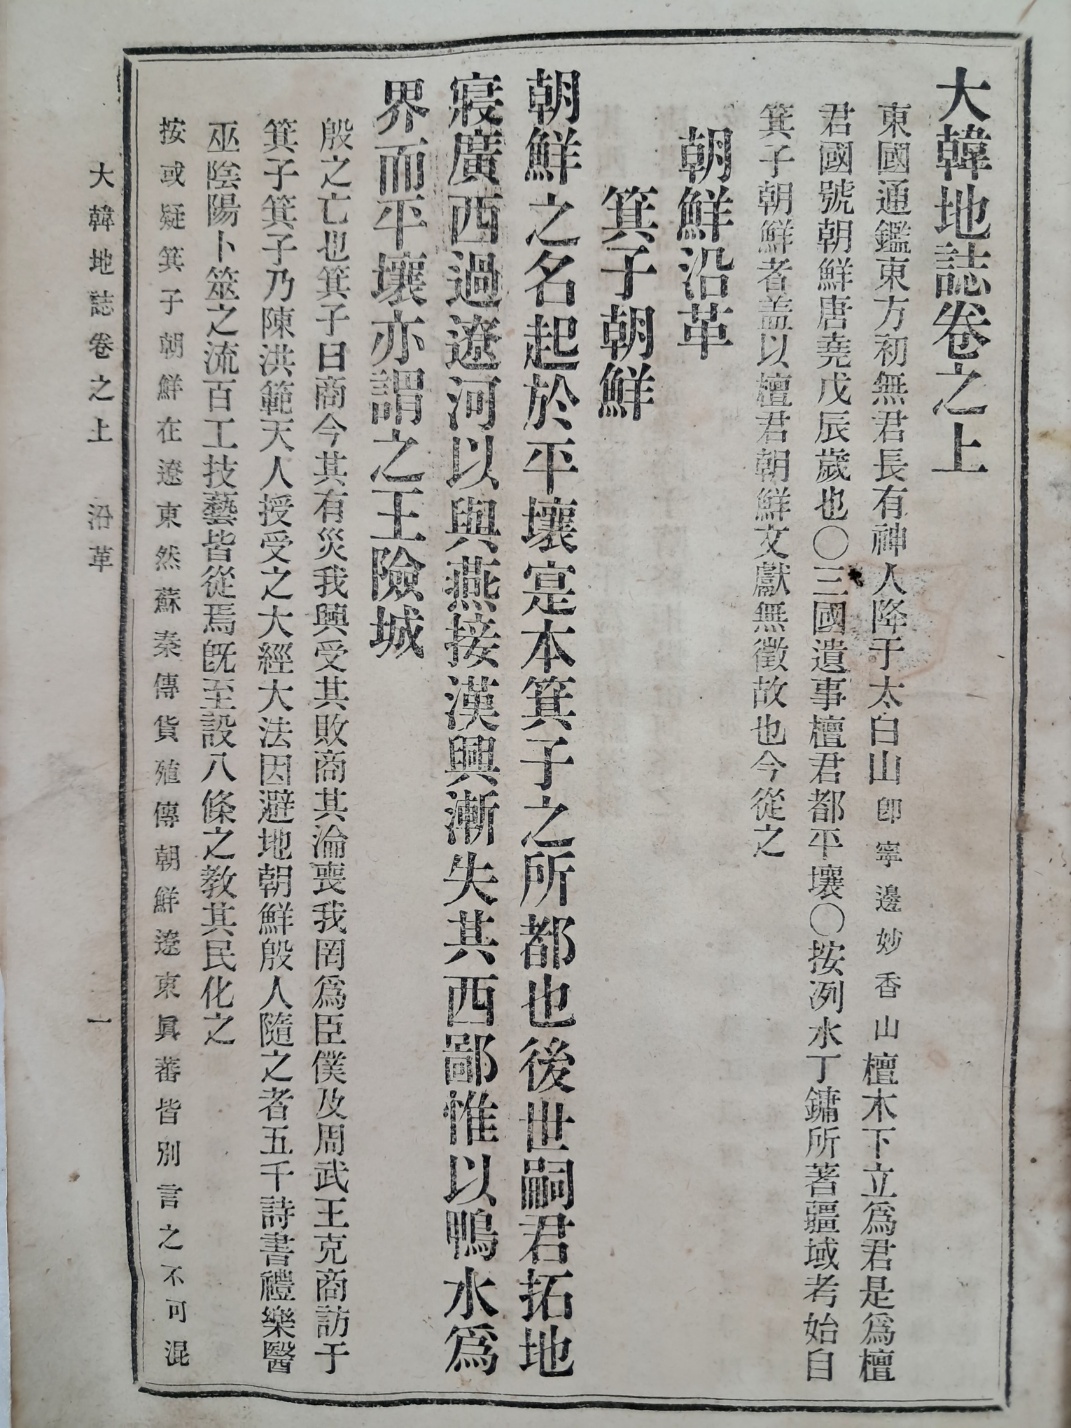 大韓地誌卷之上
東國通鑑東方初無君長有神人降于太白山卽寧邊妙香山檀木下立爲君是爲檀
君國號朝鮮唐堯戊辰歲也〇三國遺事檀君都平壤〇按洌水丁鏞所著疆域考始自
箕子朝鮮者盖以檀君朝鮮文獻無徵故也今從之
朝鮮沿革
箕子朝鮮
朝鮮之名起於平壤寔本箕子之所都也後世嗣君拓地
寢廣西過遼河以與燕接漢興漸失其西鄙惟以鴨水爲
界而平壤亦謂之王險城
殷之亡也箕子曰商今其有災我興受其敗商其淪喪我罔爲臣僕及周武王克商訪于
箕子箕子乃陳洪範天人授受之大經大法因避地朝鮮殷人隨之者五千詩書禮樂醫
巫陰陽卜筮之流百工技藝皆從焉旣至設八條之敎其民化之
按或疑箕子朝鮮在遼東然蘇秦傳貨殖傳朝鮮遼東眞蕃皆別言之不可混
大韓地誌卷之上 沿革 一